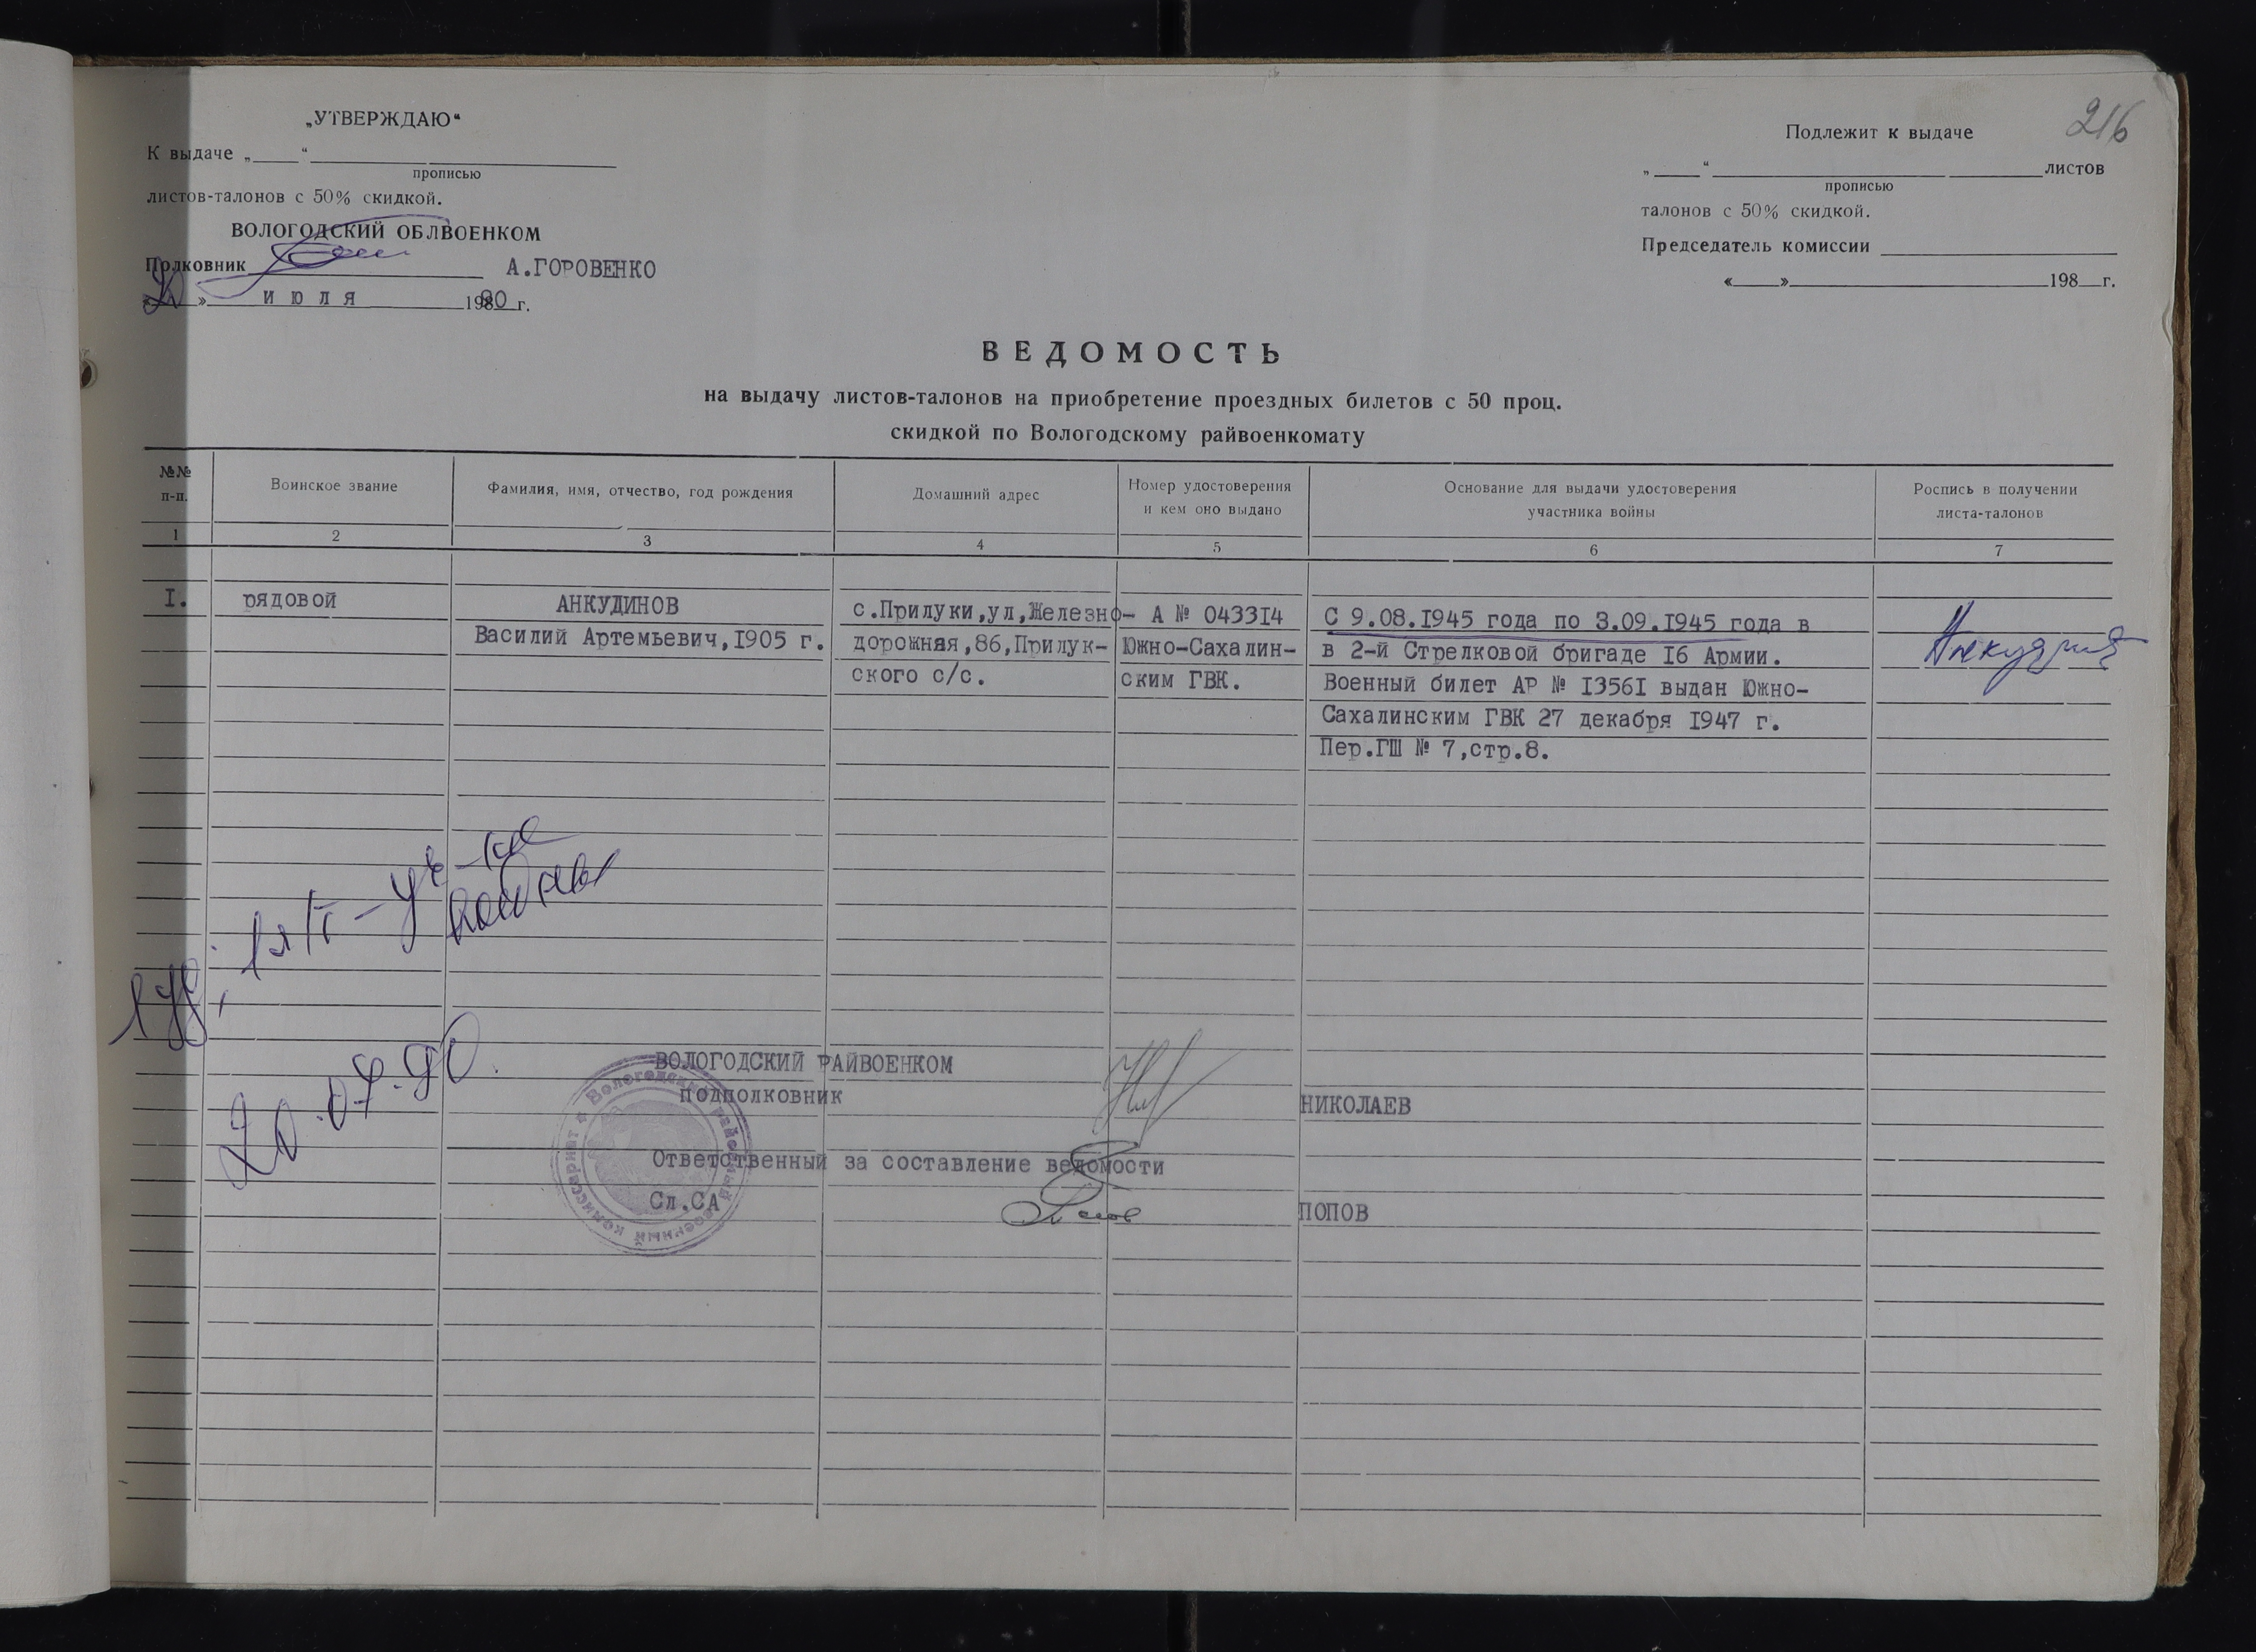 216
„УТВЕРЖДАЮ“
К выдаче „____“
прописью
листов-талонов с 50% скидкой.
ВОЛОГОДСКИЙ ОБЛВОЕНКОМ
Полковник А.ГОРОВЕНКО
«20» июля 1990 г.
Подлежит к выдаче
„____“ листов
прописью
талонов с 50% скидкой.
Председатель комиссии
«____» 198 г.
ВЕДОМОСТЬ
на выдачу листов-талонов на приобретение проездных билетов с 50 проц.
скидкой по Вологодскому райвоенкомату
№№ п-п.
Воинское звание
Фамилия, имя, отчество, год рождения
Домашний адрес
Номер удостоверения
и кем оно выдано
Основание для выдачи удостоверения
участника войны
Роспись в получении
листа-талонов
1 2 3 4 5 6 7
I. рядовой
АНКУДИНОВ
Василий Артемьевич,1905 г.
с.Прилуки,ул,Железно-
дорожная,86,Прилук-
ского с/с.
А № 043314
Южно-Сахалин-
ским ГВК.
С 9.08.1945 года по 3.09.1945 года в
в 2-й Стрелковой бригаде 16 Армии.
Военный билет АР № 13561 выдан Южно-
Сахалинским ГВК 27 декабря 1947 г.
Пер.ГШ № 7,стр.8.
20.07.90.
ВОЛОГОДСКИЙ РАЙВОЕНКОМ
подполковник
НИКОЛАЕВ
Ответственный за составление ведомости
Сл.СА
ПОПОВ
Вологодский районный военный комиссариат